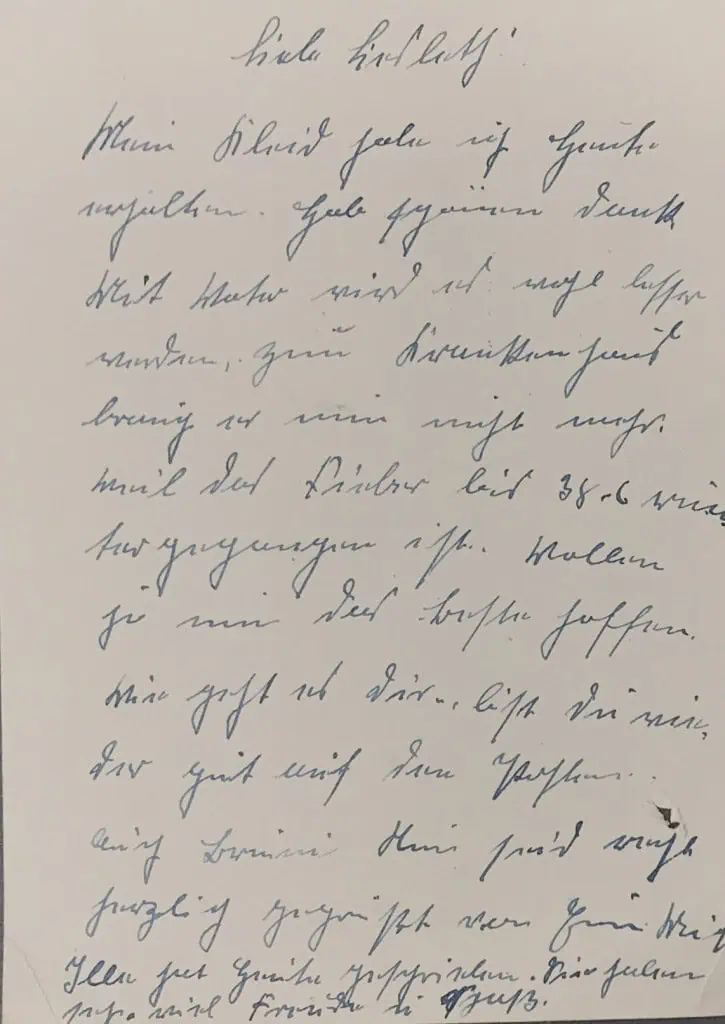 Liebe Liesloth!
Mein Kleid habe ich Heute
erhalten. Hab schönen dank
Mit Vater wird es wohl besser
werden, zum Krankenhaus
brauch er nun nicht mehr.
weil das Fieber bis 38.6 run
ter gegangen ist. Wollen
wir das Beste hoffen.
Wie geht es dir, bist du wie
der gut auf den Posten.
Auch seid recht
herzlich gegrüßt von
Ille hat Heute geschrieben. Sie haben
sehr viel Freude u Spaß.